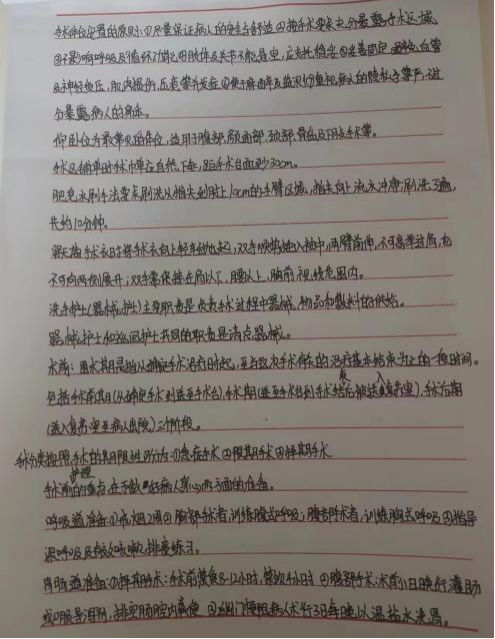 手术体位安置的原则:①尽量保证病人的安全与舒适②按手术要求充分暴露手术区域
③不影响呼吸及循环功能④肢体及关节不能悬空,应支托稳妥⑤妥善固定,避免血管
及神经受压,肌肉损伤,压疮等并发症⑥便于麻醉及监测⑦重视病人的隐私与尊严,不过
分暴露病人的身体。
仰卧位为最常见的体位,适用于腹部,颌面部,颈部,骨盆及下肢手术等。
手术及铺单时手术中单应自然下垂,距手术台面至少30cm。
肥皂水刷手法要求刷洗从指尖到肘上10cm的手臂区域,指尖向上流水冲净;刷洗3遍,
共约10分钟。
穿无菌手术衣时将手术衣向上轻轻抛起,双手顺势插入袖中,两臂前伸,不可高举过肩,也
不可向两侧展开;双手要保持在肩以下,腰以上,胸前,视线范围内。
洗手护士(器械护士)主要职责是负责手术过程中器械、物品和敷料的供给。
器械护士和巡回护士共同的职责是清点器械。
围术期:围手术期是指从确定手术治疗时起,至与这次手术有关的治疗基本结束为止的一段时间。
包括手术前期(从确定手术到送至手术台)、手术期(送至手术台到手术后被送入复苏室)、手术后期
(送入复苏室至病人出院)三个阶段。
手术分类按照手术的期限性可分为:①急症手术②限期手术③择期手术
手术前护理的重点在于做好病人身心两方面的准备。
呼吸道准备:①戒烟2周②胸部手术者,训练腹式呼吸;腹部手术者,训练胸式呼吸③指导
深呼吸及有效咳嗽、排痰练习。
胃肠道准备:①择期手术:手术前禁食8-12小时,禁饮4小时②腹部手术:术前1日晚行灌肠
或口服导泻剂,排空肠腔内粪便③幽门梗阻病人术前3日每晚以温盐水洗胃。